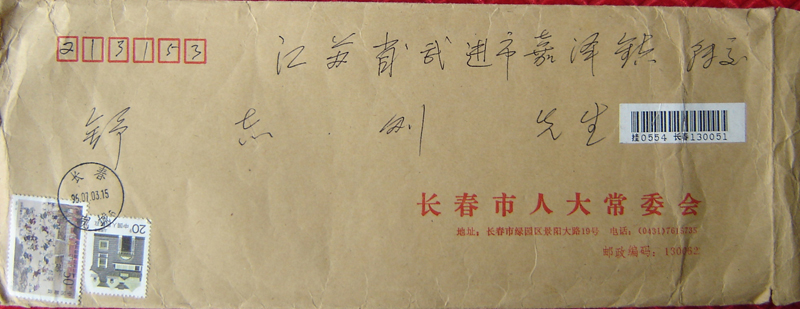 213153
江苏省武进市嘉泽镇
舒志刚 先生
挂0554 长春130051
长春
95.07.03.15
长春市人大常委会
地址:长春市绿园区景阳大路19号 电话:
邮政编码:130062
20分
50